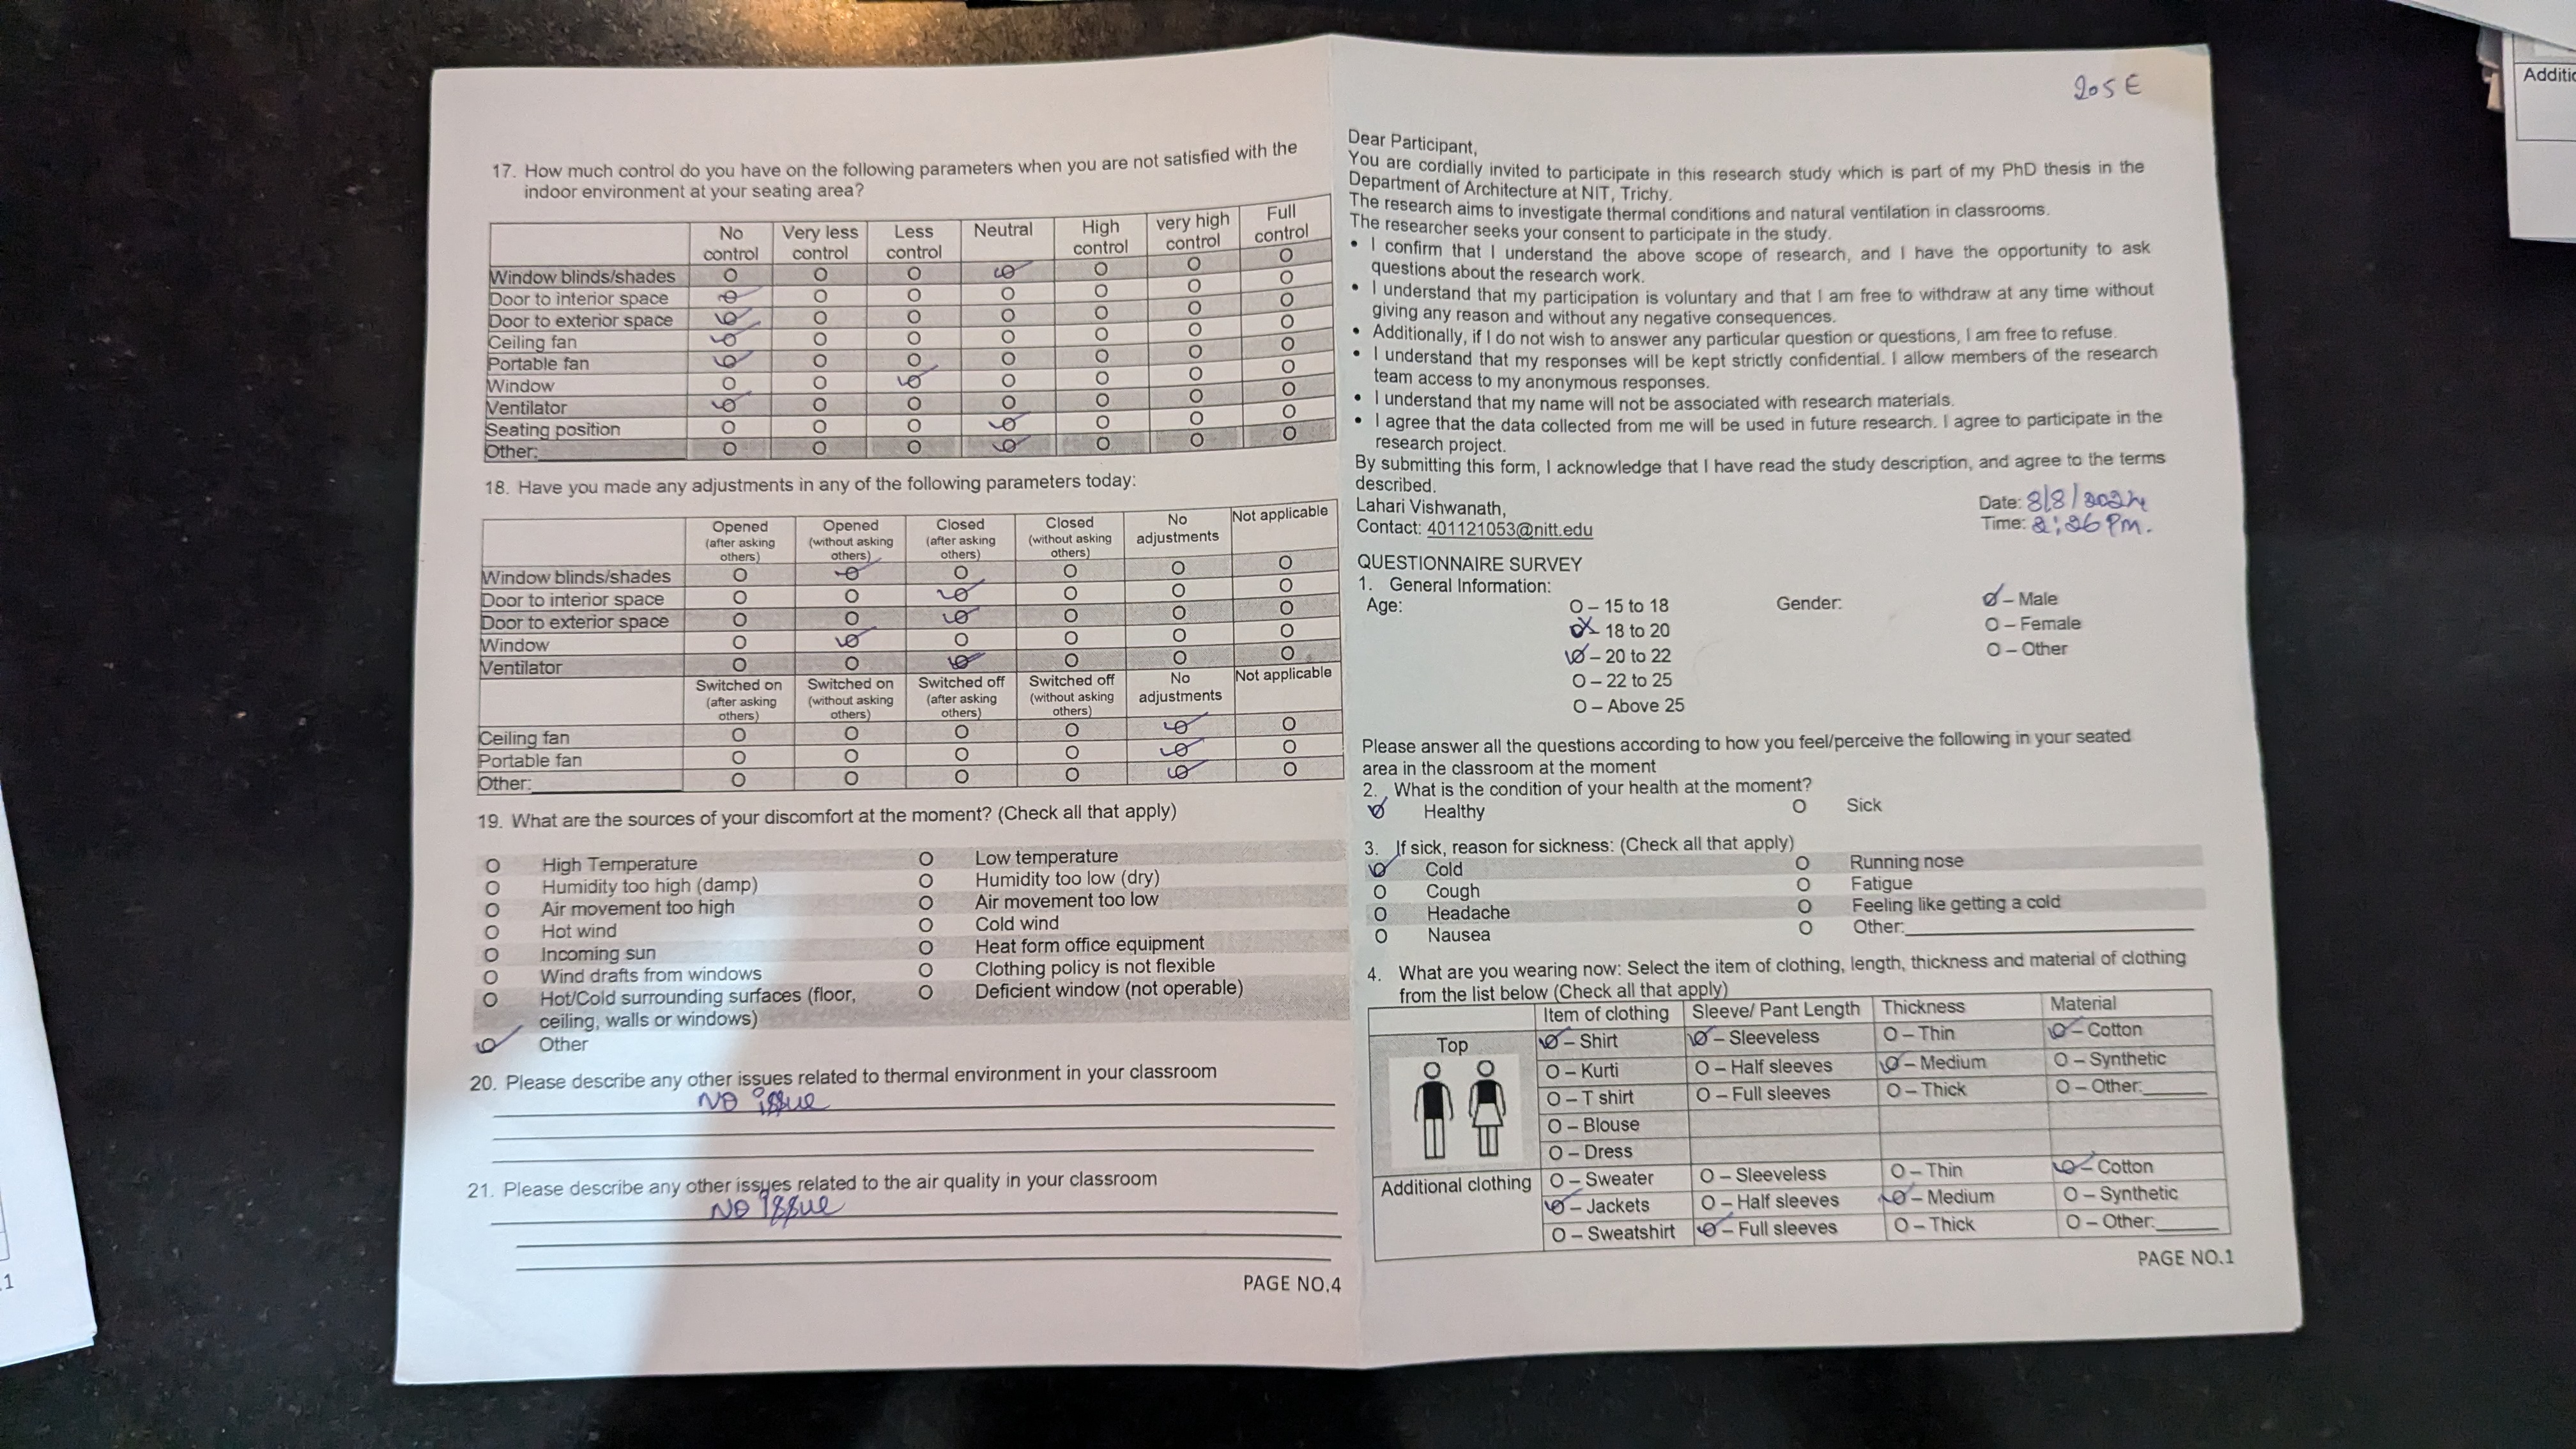 Additio
.1
17. How much control do you have on the following parameters when you are not satisfied with the
indoor environment at your seating area?
No control Very less control Less control Neutral High control very high control Full control
Window blinds/shades O O O O O O O
Door to interior space O O O O O O O
Door to exterior space O O O O O O O
Ceiling fan O O O O O O O
Portable fan O O O O O O O
Window O O O O O O O
Ventilator O O O O O O O
Seating position O O O O O O O
Other:________ O O O O O O O
18. Have you made any adjustments in any of the following parameters today:
Opened (after asking others) Opened (without asking others) Closed (after asking others) Closed (without asking others) No adjustments Not applicable
Window blinds/shades O O O O O O
Door to interior space O O O O O O
Door to exterior space O O O O O O
Window O O O O O O
Ventilator O O O O O O
Switched on (after asking others) Switched on (without asking others) Switched off (after asking others) Switched off (without asking others) No adjustments Not applicable
Ceiling fan O O O O O O
Portable fan O O O O O O
Other:________ O O O O O O
19. What are the sources of your discomfort at the moment? (Check all that apply)
O High Temperature O Low temperature
O Humidity too high (damp) O Humidity too low (dry)
O Air movement too high O Air movement too low
O Hot wind O Cold wind
O Incoming sun O Heat form office equipment
O Wind drafts from windows O Clothing policy is not flexible
O Hot/Cold surrounding surfaces (floor, O Deficient window (not operable)
ceiling, walls or windows)
O Other
20. Please describe any other issues related to thermal environment in your classroom
NO issue
21. Please describe any other issues related to the air quality in your classroom
NO issue
PAGE NO.4
205 E
Dear Participant,
You are cordially invited to participate in this research study which is part of my PhD thesis in the
Department of Architecture at NIT, Trichy.
The research aims to investigate thermal conditions and natural ventilation in classrooms.
The researcher seeks your consent to participate in the study.
• I confirm that I understand the above scope of research, and I have the opportunity to ask
questions about the research work.
• I understand that my participation is voluntary and that I am free to withdraw at any time without
giving any reason and without any negative consequences.
• Additionally, if I do not wish to answer any particular question or questions, I am free to refuse.
• I understand that my responses will be kept strictly confidential. I allow members of the research
team access to my anonymous responses.
• I understand that my name will not be associated with research materials.
• I agree that the data collected from me will be used in future research. I agree to participate in the
research project.
By submitting this form, I acknowledge that I have read the study description, and agree to the terms
described.
Lahari Vishwanath,
Contact: 401121053@nitt.edu
Date: 8/8/2024
Time: 2:26 Pm.
QUESTIONNAIRE SURVEY
1. General Information:
Age: O – 15 to 18 Gender: O – Male
O – 18 to 20 O – Female
O – 20 to 22 O – Other
O – 22 to 25
O – Above 25
Please answer all the questions according to how you feel/perceive the following in your seated
area in the classroom at the moment
2. What is the condition of your health at the moment?
O Healthy O Sick
3. If sick, reason for sickness: (Check all that apply)
O Cold O Running nose
O Cough O Fatigue
O Headache O Feeling like getting a cold
O Nausea O Other:________
4. What are you wearing now: Select the item of clothing, length, thickness and material of clothing
from the list below (Check all that apply)
Item of clothing Sleeve/ Pant Length Thickness Material
Top O – Shirt O – Sleeveless O – Thin O – Cotton
O – Kurti O – Half sleeves O – Medium O – Synthetic
O – T shirt O – Full sleeves O – Thick O – Other:______
O – Blouse
O – Dress
Additional clothing O – Sweater O – Sleeveless O – Thin O – Cotton
O – Jackets O – Half sleeves O – Medium O – Synthetic
O – Sweatshirt O – Full sleeves O – Thick O – Other:______
PAGE NO.1